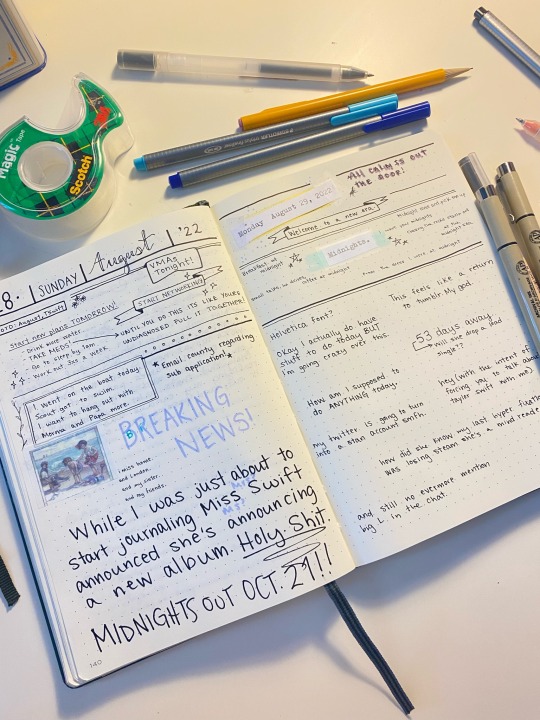 Magic Tape
Scotch
28. | SUNDAY | August | '22
SOTD: August
VMAs
Tonight!
Start new plans TOMORROW!
- Drink more water
- TAKE MEDS
- Go to sleep by 1am
- Work out 3x a week
START NETWORKING
UNTIL YOU DO THIS ITS LIKE YOURE
UNDIAGNOSED PULL IT TOGETHER!
I went on the boat today
Scout got to swim
I want to hang out with
Morma and Papa more.
*Email county regarding
sub application!*
BREAKING
NEWS!
i miss home.
and London.
and my sister.
and my friends.
While I was just about to
start journaling Miss Swift
announced she's announcing
a new album. Holy Shit.
MIDNIGHTS OUT OCT. 21!!
140
All calm is out
the door!
Monday August 29, 2022
Welcome to a new era
Midnights.
Helvetica font?
This feels like a return
to tumblr my god.
Okay I actually do have
stuff to do today BUT
I'm going crazy over this.
53 days away
Will she drop a lead
single?
How am I supposed to
do ANYTHING today.
hey (with the intent of
forcing you to talk about
taylor swift with me)
my twitter is going to turn
into a stan account smth.
how did she know my last hyper fixation
was losing steam she's a mind reader
and still no evermore mention
big L in the chat.